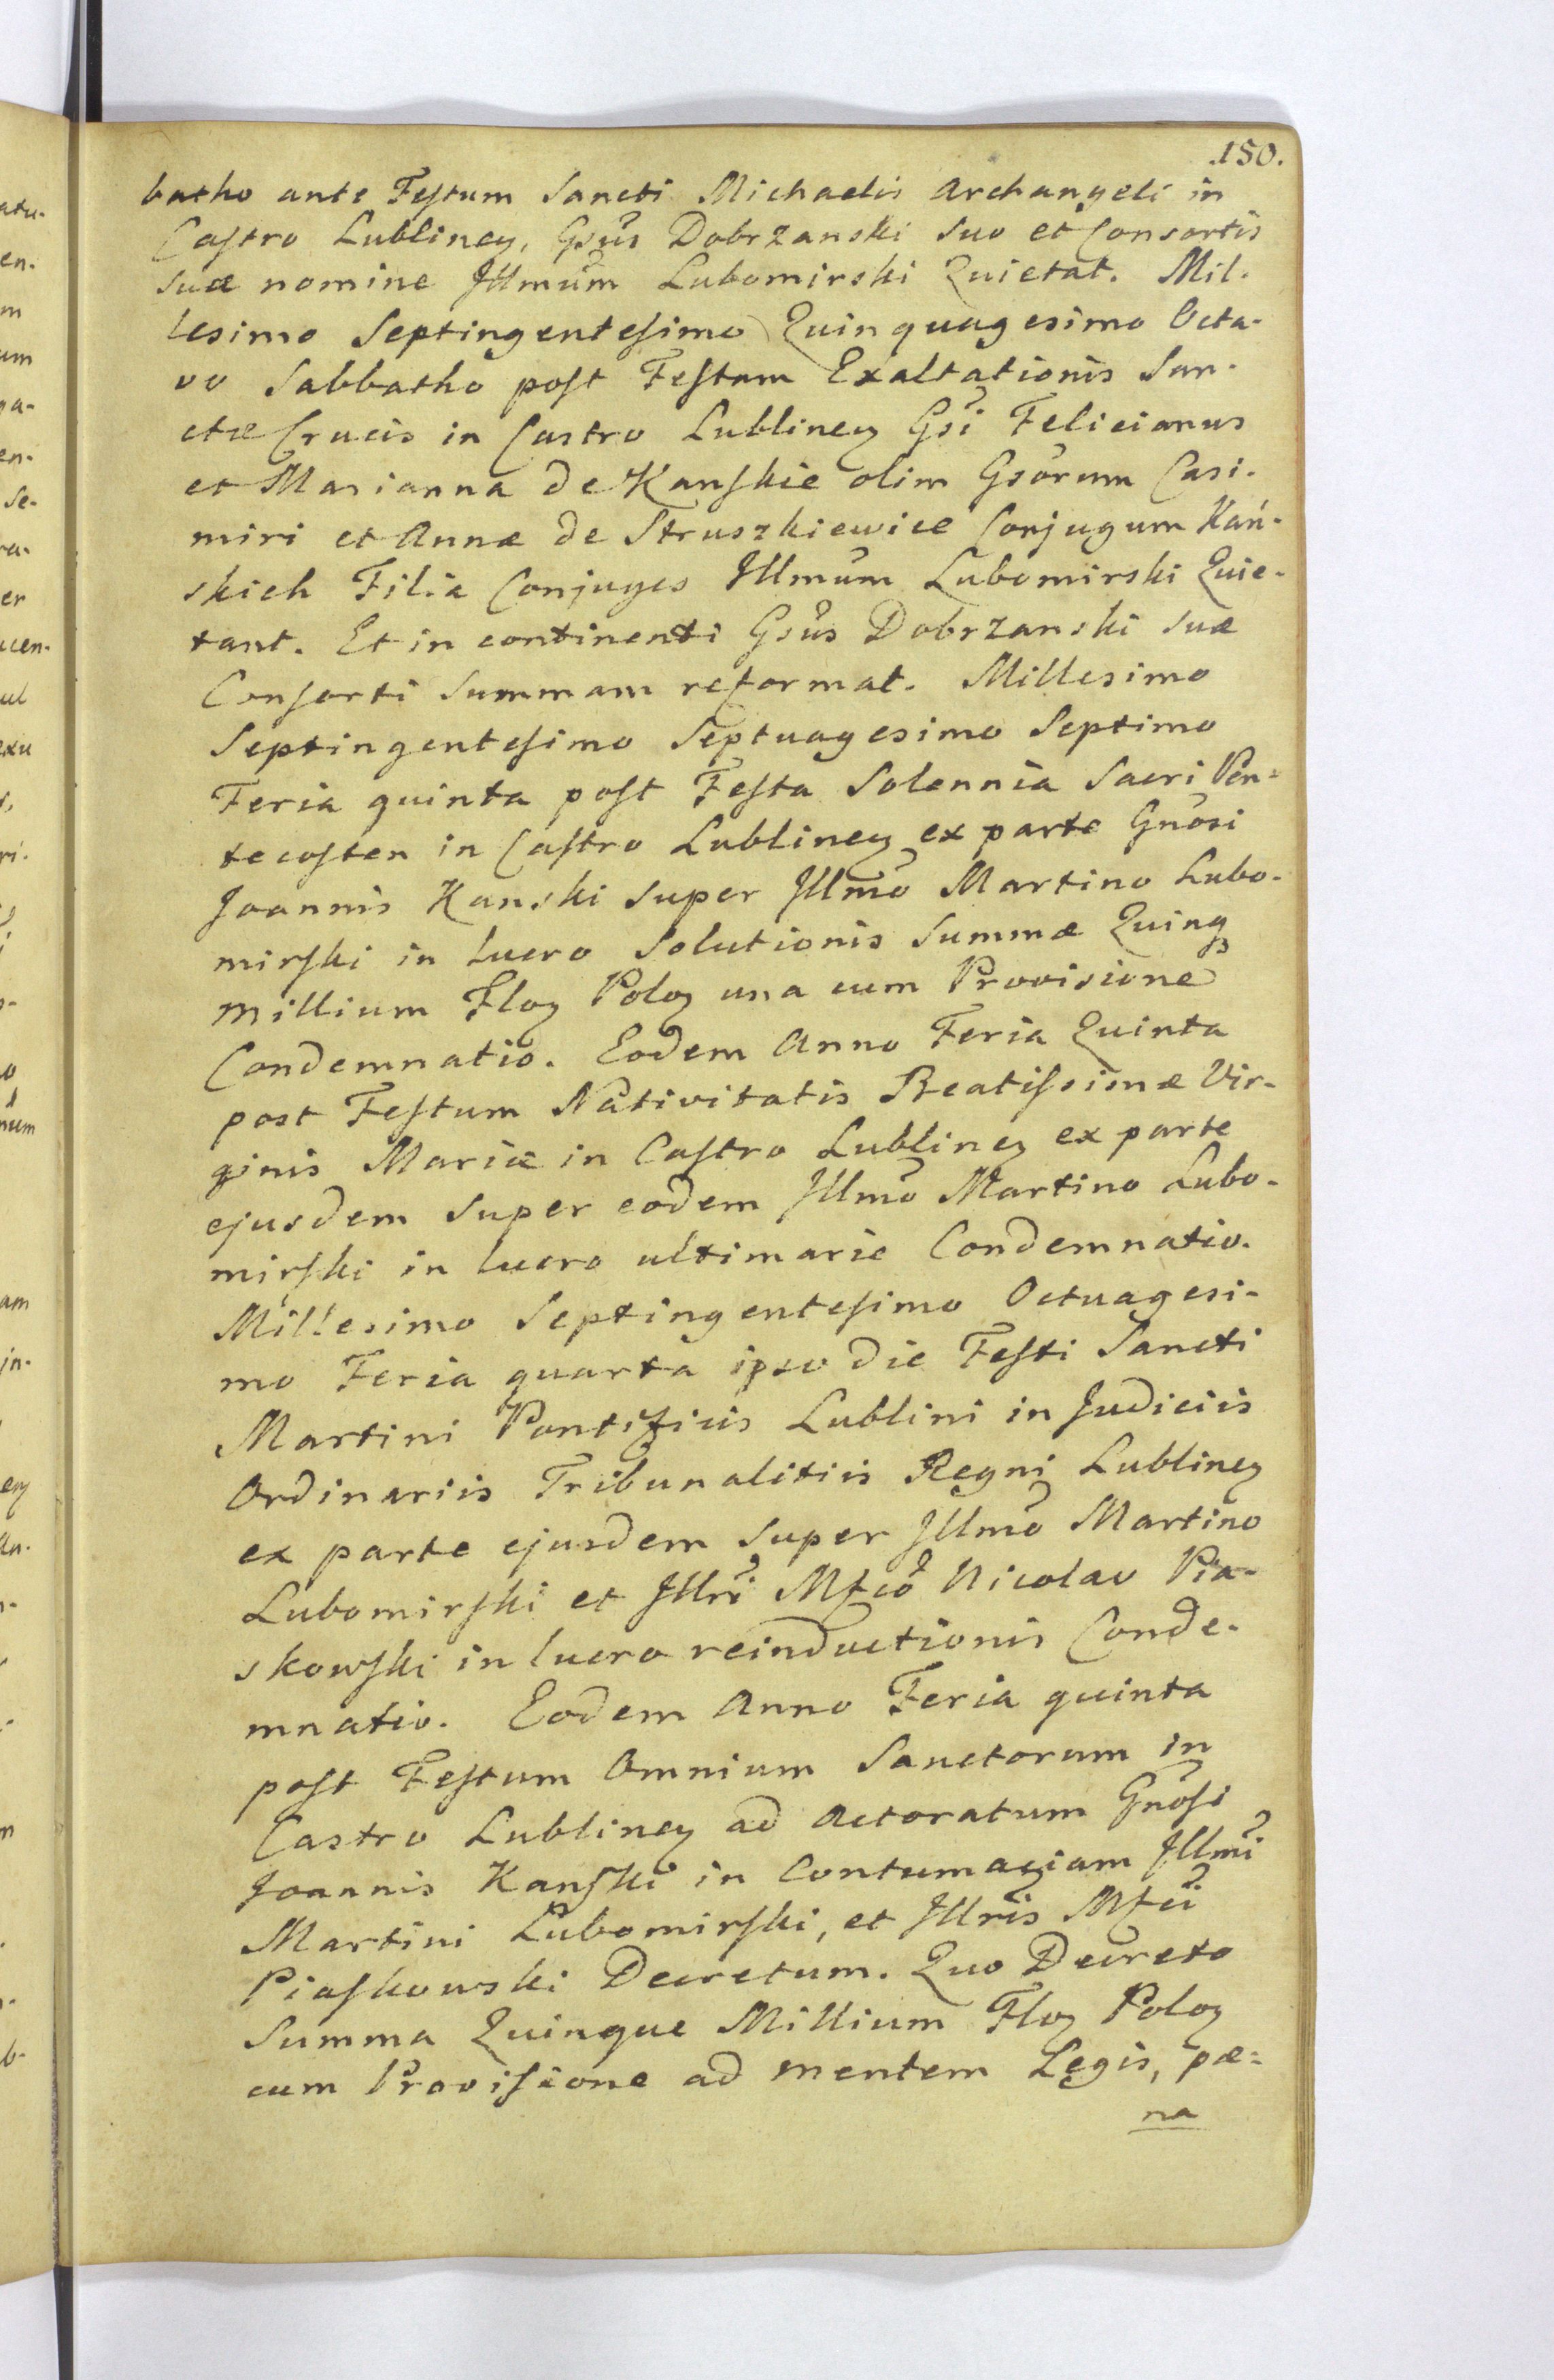 150.
batho ante Festum Sancti Michaelis Archangeli in
Castro Lublineñ, Gsus Dobrzanski suo et Consortis
suæ nomine Illmum Lubomirski Quietat. Mil-
lesimo Septingentesimo Quinquagesimo Octa-
vo Sabbatho post Festum Exaltationis San-
ctæ Crucis in Castro Lublineñ Gsi Felicianus
et Marianna de Kanskie olim Gsorum Casi-
miri et Annæ de Struszkiewice Conjugum Kań-
skich Filia Conjuges Illmum Lubomirski Quie-
tant. Et in continenti Gsus Dobrzanski suæ
Consorti Summam reformat. Millesimo
Septingentesimo Septuagesimo Septimo
Feria quinta post Festa Solennia Sacri Pen=
tecosten in Castro Lublineñ ex parte Gnosi
Joannis Kanski super Illmo Martino Lubo-
mirski in lucro Solutionis Summæ Quinq3
Millium Floñ Poloñ una cum Provisione
Condemnatio. Eodem Anno Feria Quinta
post Festum Nativitatis Beatissimæ Vir-
ginis Mariæ in Castro Lublineñ ex parte
ejusdem super eodem Illmo Martino Lubo-
mirski in lucro ultimarie Condemnatio.
Millesimo Septingentesimo Octuagesi-
mo Feria quarta ipso die Festi Sancti
Martini Pontificis Lublini in Judiciis
Ordinariis Tribunalitiis Regni Lublineñ
ex parte ejusdem super Illmo Martino
Lubomirski et Illri Mfco Nicolao Pia-
skowski in lucro reinductionis Conde-
mnatio. Eodem Anno Feria quinta
post Festum Omnium Sanctorum in
Castro Lublineñ ad Actoratum Gnosi
Joannis Kanski in Contumaciam Illmi
Martini Lubomirski, et Illris Mfci
Piaskowski Decretum. Quo Decreto
Summa Quinque Millium Floñ Poloñ
cum Provisione ad mentem Legis, pæ=
na